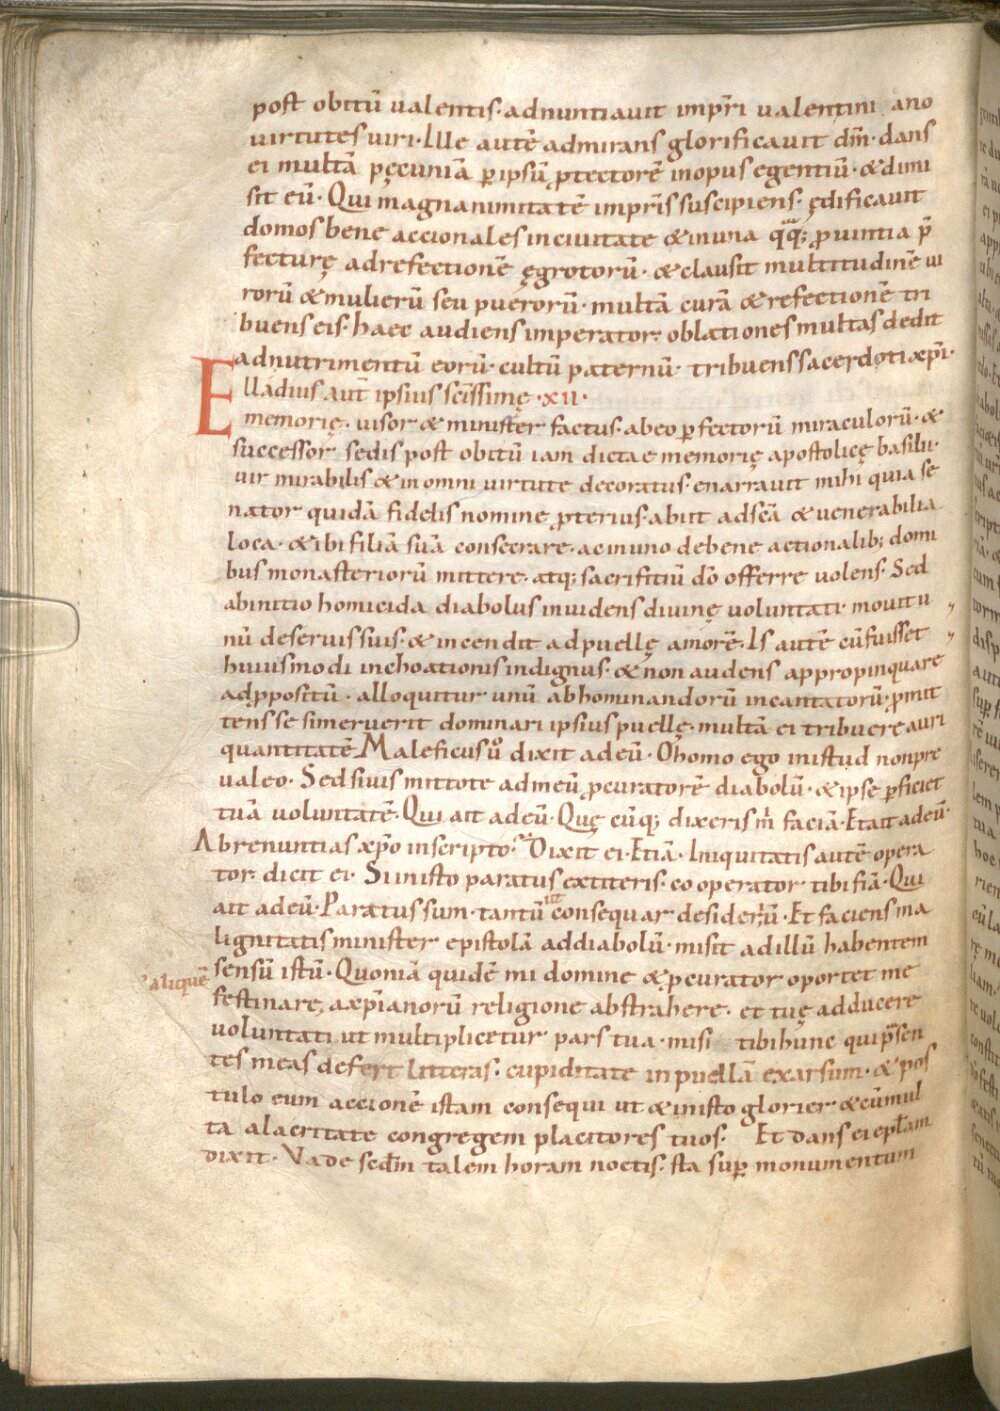 post obitū valentis· adnuntiavit impr̄i valentini ano
virtutes viri· Ille autē admirans glorificavit dm̄· dans
ei multā pęcuniā ꝑ ipsū ꝓtectorē inopus egentiū· & dimi
sit eū· Qui magnanimitatē impr̄is suscipiens· ędificavit
domos bene accionales in civitate & in una qq; ꝓvintia p̄
fecturę ad refectionē ęgrotorū· & clausit multitudinē vi
rorū & mulierū seu puerorū· multā curā & refectionē tri
buens eis· haec audiens imperator· oblationes multas dedit
ad nutrimentū eorū· cultū paternū· tribuens sacerdoti xp̄i·
Elladius aut̄ ipsius scīssimę ·xii·
memorię· visor & minister factus· ab eo ꝑfectorū miraculorū· &
successor sedis post obitū iam dictae memorię apostolicę basilii·
vir mirabilis & in omni virtute decoratus· enarravit mihi quia se
nator quidā fidelis nomine ꝓterius· abiit ad scā & venerabilia
loca· & ibi filiā suā consecrare· ac in uno de bene actionalib; domi
bus monasteriorū mittere· atq; sacrifitiū dō offerre volens· Sed
ab initio homicida diabolus invidens divinę voluntati· movit u
nū de servis suis· & incendit ad puellę amorē· Is autē cū fuisset
huiusmodi inchoationis indignus· & non audens appropinquare
ad ꝓpositū· alloquitur unū abhominandorū incantatorū· ꝓmit
tens se si meruerit dominari ipsius puellę· multā ei tribuere auri
quantitatē· Maleficus v̊ dixit ad eū· O homo ego in istud non pre
valeo· Sed si vis mittote ad meū ꝓcuratorē diabolū· & ipse ꝑficiet
tuā voluntatē· Qui ait ad eū· Quę cūq; dixeris m̄ faciā· Et ait ad eū·
Abrenuntias xp̄o in scripto· Dixit ei· Etiā· Iniquitatis autē opera
tor dicit ei· Si in isto paratus extiteris· cooperator tibi fiā· Qui
ait ad eū· Paratus sum· tantū ut consequar desideriū· Et faciens ma
lignitatis minister epistolā ad diabolū· misit ad illū habentem
aliquē sensū istū· Quoniā quidē mi domine & ꝓcurator oportet me
festinare, a xp̄ianorū religione abstrahere· et tuę adducere
voluntati ut multiplicetur pars tua· misi tibi hunc qui p̄sen
tes meas defert litteras· cupiditate in puellā exarsum· & pos
tulo eum accionē istam consequi ut & in isto glorier & cū mul
ta alacritate congregem placitores tuos· Et dans ei epl̄am
dixit· Vade scd̄m talem horam noctis· sta suꝑ monumentum